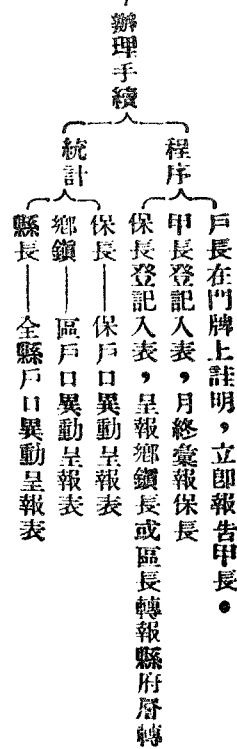 辦理手續
程序
戶長在門牌上註明，立即報告甲長。
甲長登記入表，月終彙報保長
保長登記入表，呈報鄉鎮長或區長轉報縣府層轉
統計
保長——保戶口異動呈報表
鄉鎮——區戶口異動呈報表
縣長——全縣戶口異動呈報表